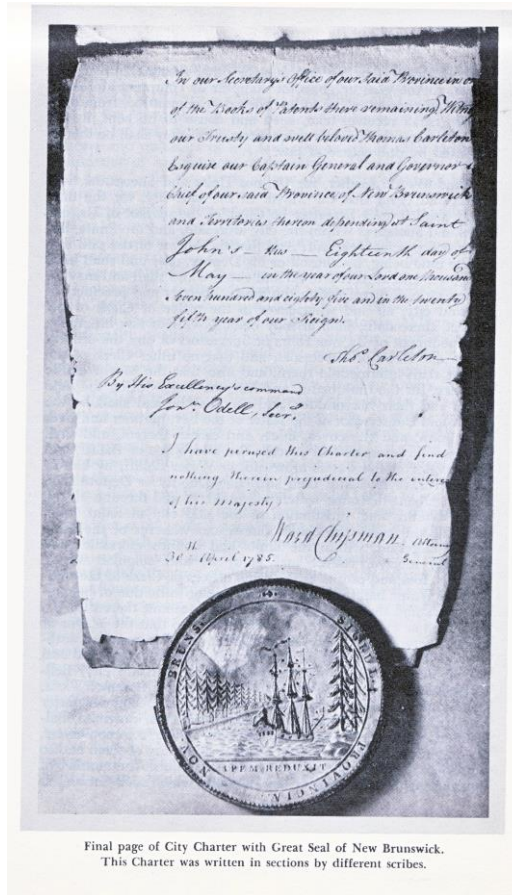 In our Secretary's Office of our said Province in
of the Books of Patents there remaining
our Trusty and well beloved Thomas Carleton
Esquire our Captain General and Governor
Chief of our said Province of New Brunswick
and Territories thereon depending at Saint
John's — this — Eighteenth day of
May — in the year of our Lord one thousand
seven hundred and eighty five and in the twenty
fifth year of our Reign.
Thos. Carleton
By His Excellency's command
Jonn. Odell, Secry.
I have perused this Charter and find
nothing therein prejudicial to the
of his majesty
Ward Chipman Attorney
General
30th April 1785.
SIGILL. PROVINCIÆ NOV. BRUNS.
SPEM REDUXIT
Final page of City Charter with Great Seal of New Brunswick.
This Charter was written in sections by different scribes.